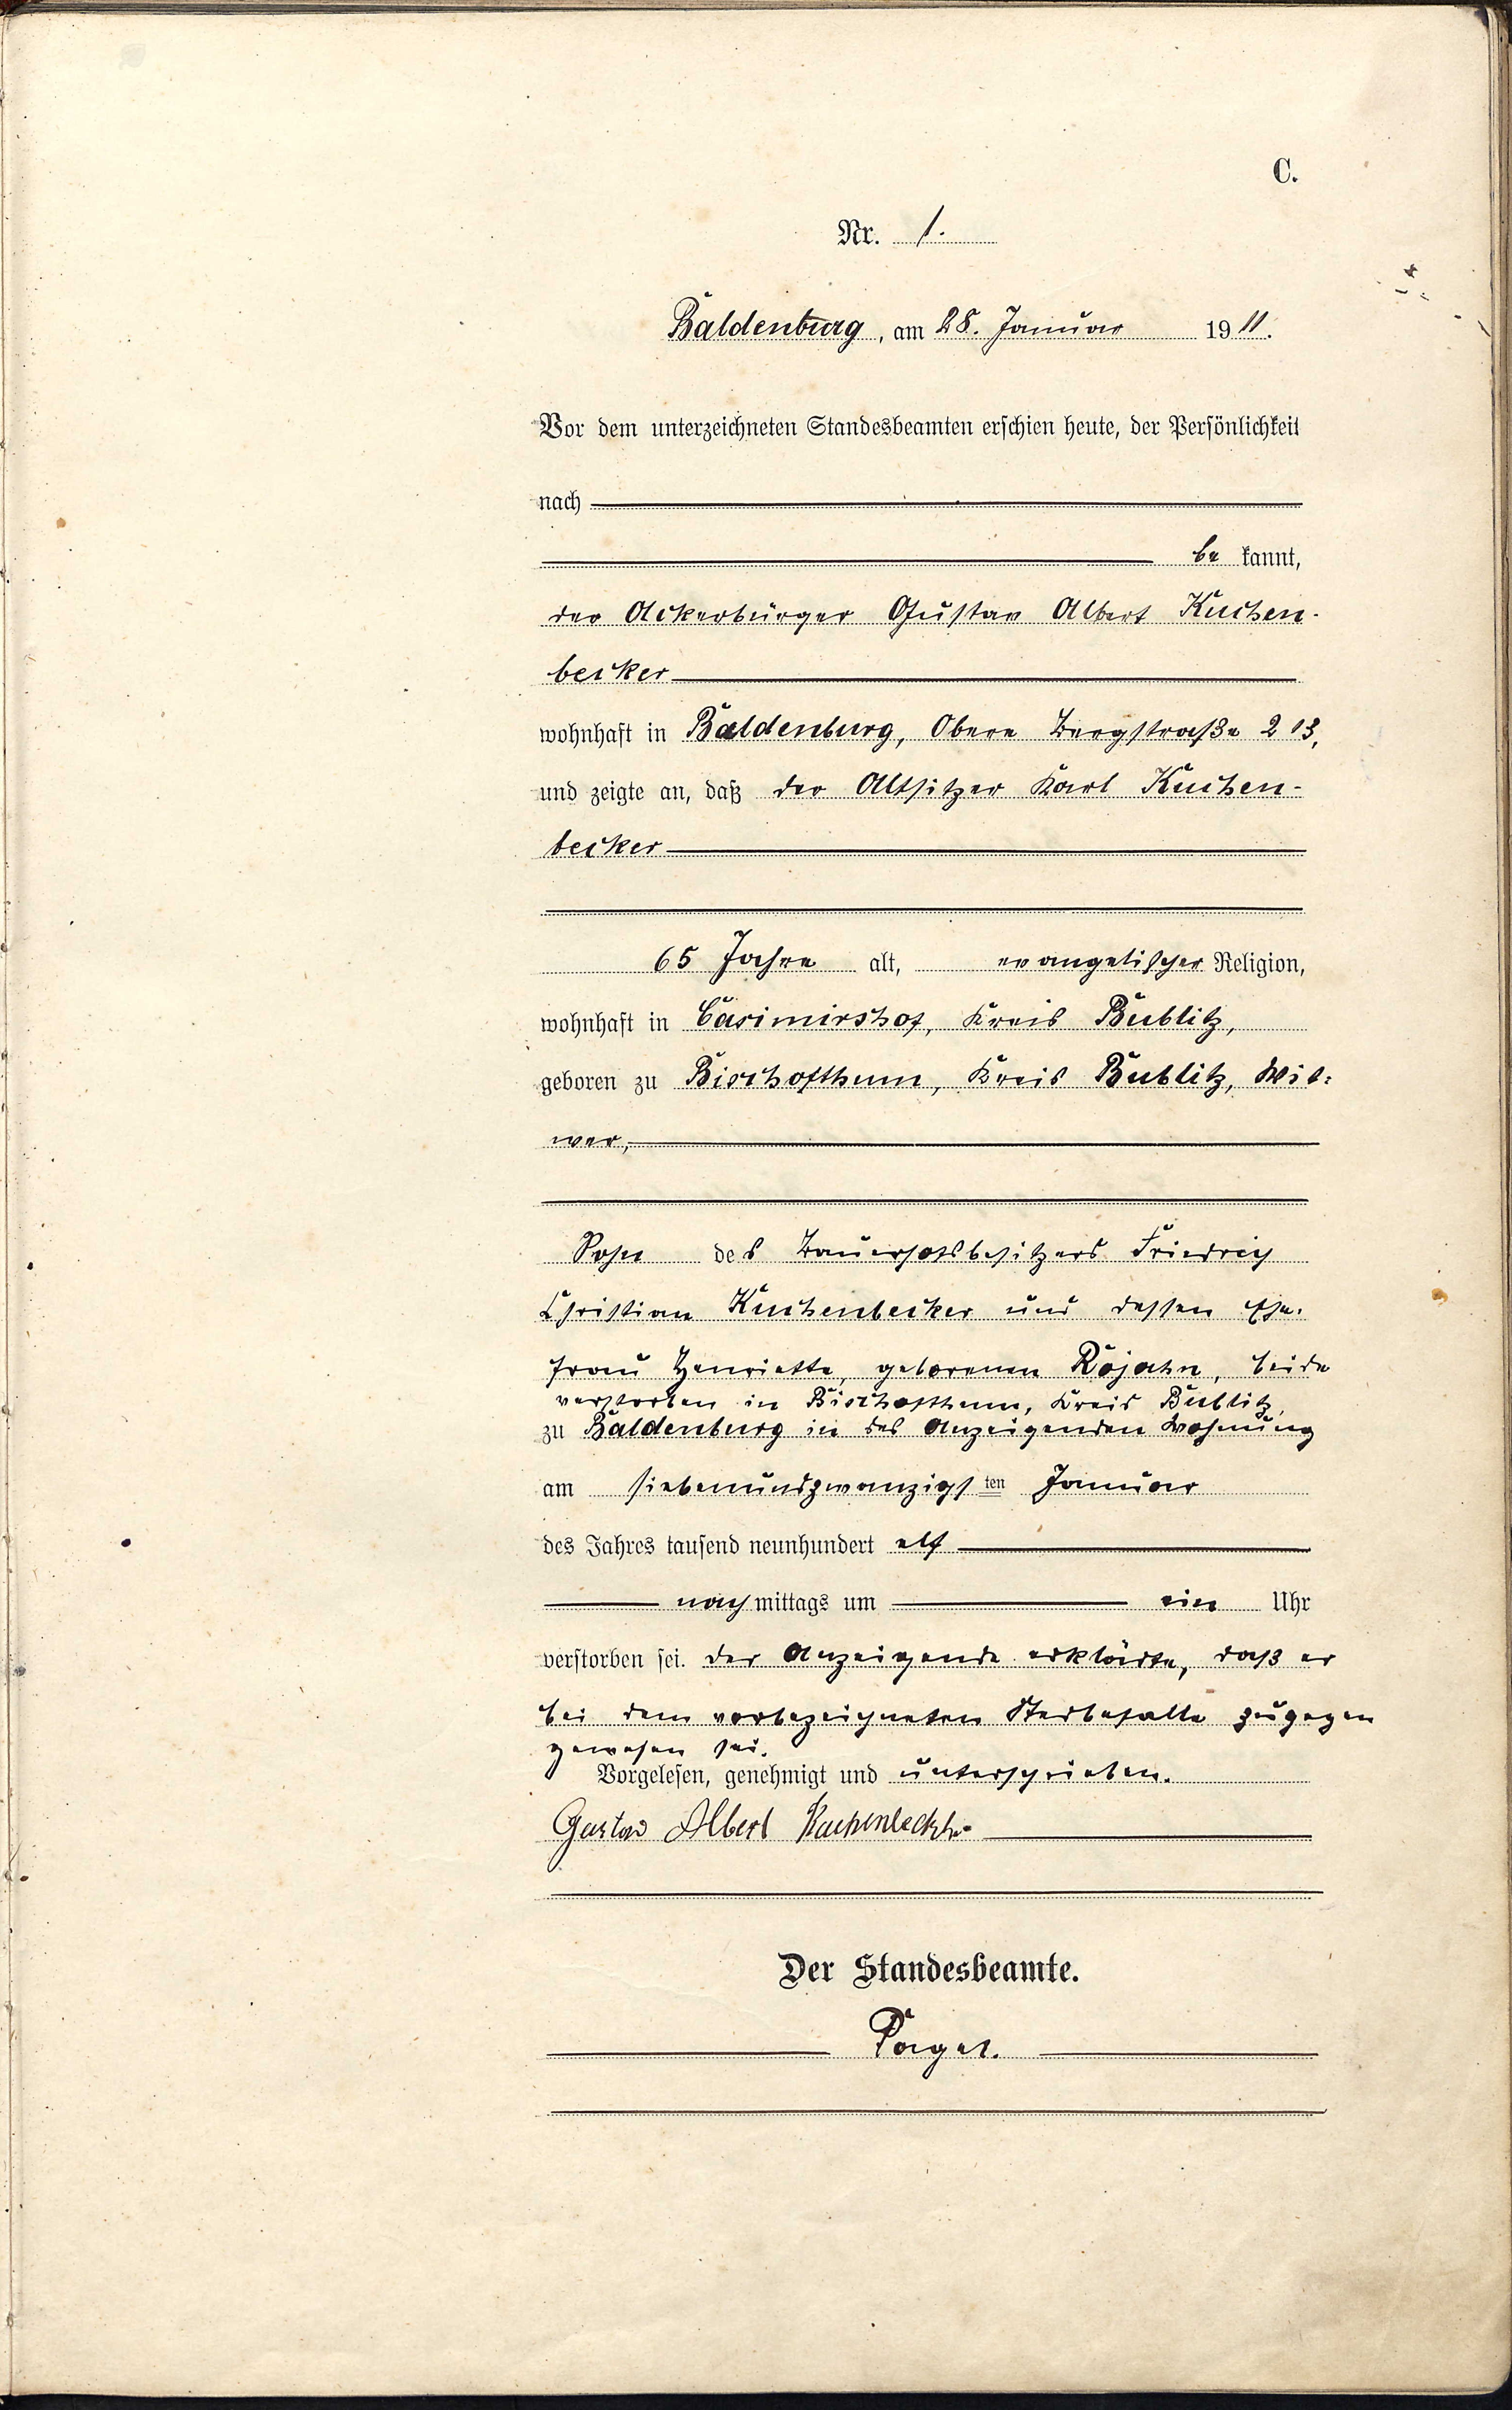 C.
Nr. 1.
Baldenburg, am 28. Januar 1911.
Vor dem unterzeichneten Standesbeamten erschien heute, der Persönlichkeit
nach
be kannt,
der Ackerbürger Gustav Albert Kuchen-
becker
wohnhaft in Baldenburg, Obere Bergstraße 213,
und zeigte an, daß der Altsitzer Karl Kuchen-
becker
65 Jahre alt, evangelischer Religion,
wohnhaft in Casimirshof, Kreis Bublitz,
geboren zu Bischofthum, Kreis Bublitz, Wit-
wer,
Sohn des Bauerhofsbesitzers Friedrich
Christian Kuchenbecker und dessen Ehe-
frau Henriette, geborenen Rojahn, beide
verstorben in Bischofthum, Kreis Bublitz,
zu Baldenburg in des Anzeigenden Wohnung
am siebenundzwanzigsten Januar
des Jahres tausend neunhundert elf
nachmittags um ein Uhr
verstorben sei. Der Anzeigende erklärte, daß er
bei dem vorbezeichneten Sterbefalle zugegen
gewesen sei.
Vorgelesen, genehmigt und unterschrieben.
Gustav Albert Kuchenbecker
Der Standesbeamte.